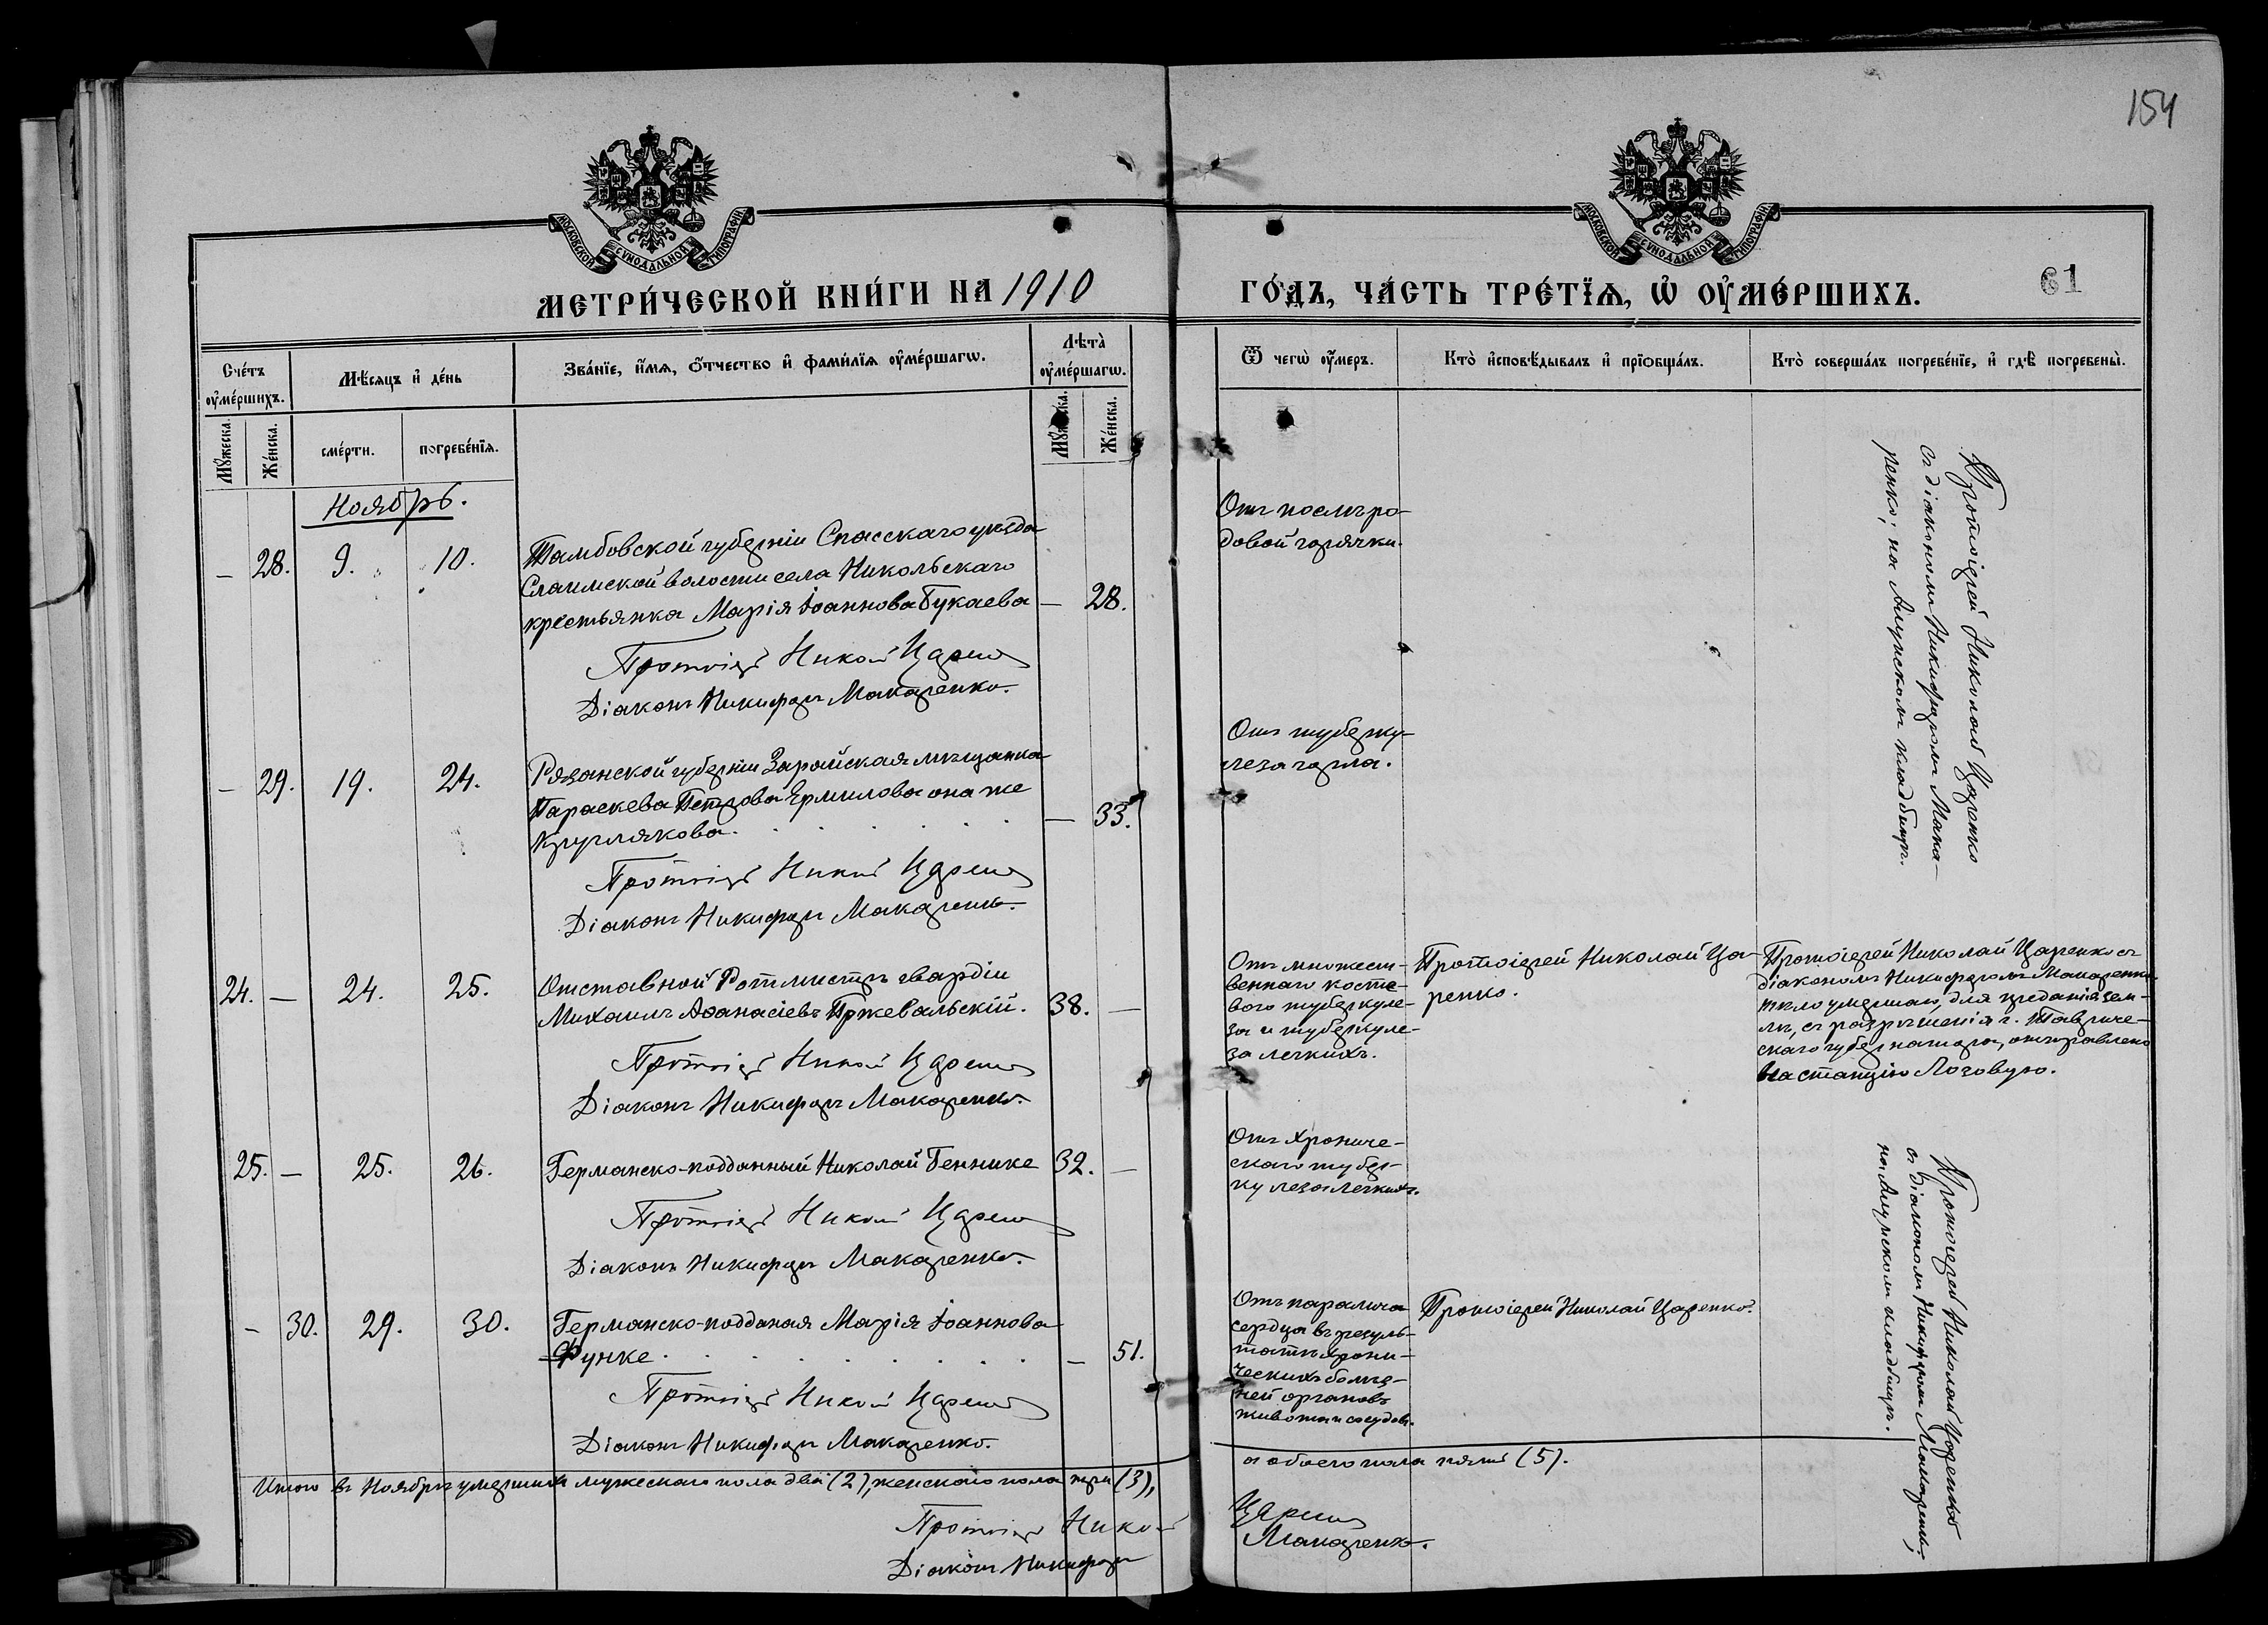 154
МОСКОВСКОЙ СѴНОДАЛЬНОЙ ТИПОГРАФІИ
МОСКОВСКОЙ СѴНОДАЛЬНОЙ ТИПОГРАФІИ
МЕТРИ́ЧЕСКОЙ КНИ́ГИ НА 1910 ГО́ДЪ, ЧА́СТЬ ТРЕ́ТЇѦ, Ѡ҆ ОУ҆МЕ́РШИХЪ.
61
Сче́тъ оу҆ме́ршихъ.
Мѣ́сяцъ и҆ де́нь
Зва́нїе, и҆́мѧ, ѻ҆́тчество и҆ фами́лїѧ оу҆ме́ршагѡ.
Лѣта̀ оу҆ме́ршагѡ.
Ѿ чегѡ̀ оу҆́меръ.
Кто̀ и҆сповѣ́дывалъ и҆ прїѡбща́лъ.
Кто̀ соверша́лъ погребе́нїе, и҆ гдѣ̀ погребены̀.
Мꙋ́жеска.
Же́нска.
сме́рти.
погребе́нїѧ.
Мꙋ́жеска.
Же́нска.
Ноябрь.
— 28. 9. 10.
Тамбовской губерніи Спасскаго уѣзда
Слаимской волости села Никольскаго
крестьянка Марія Іоаннова Букаева — 28.
Протоіерей Николай Царенко
Діаконъ Никифоръ Макаренко.
Отъ послѣро-
довой горячки.
Протоіерей Николай Царенко
съ діакономъ Никифоромъ Мака-
ренко; на Алупскомъ кладбищѣ.
— 29. 19. 24.
Рязанской губерніи Зарайская мѣщанка
Параскева Петрова Ермилова она же
Круглякова. — 33.
Протоіерей Николай Царенко
Діаконъ Никифоръ Макаренко.
Отъ туберку-
леза горла.
24. — 24. 25.
Отставной Ротмистръ гвардіи
Михаилъ Аѳанасіевъ Пржевальскій. 38. —
Протоіерей Николай Царенко
Діаконъ Никифоръ Макаренко.
Отъ множест-
веннаго косте-
вого туберкуле-
за и туберкуле-
за легкихъ.
Протоіерей Николай Ца-
ренко.
Протоіерей Николай Царенко съ
діакономъ Никифоромъ Макаренко
тѣло умершаго, для преданія зем-
лѣ, съ разрѣшенія г. Тавриче-
скаго губернатора, отправлено
на станцію Лозовую.
25. — 25. 26.
Германско-подданный Николай Геннике 32. —
Протоіерей Николай Царенко
Діаконъ Никифоръ Макаренко.
Отъ хрониче-
скаго тубер-
кулеза легкихъ.
Протоіерей Николай Царенко
съ діакономъ Никифоромъ Макаренко;
на Алупскомъ кладбищѣ.
— 30. 29. 30.
Германско-подданая Марія Іоаннова
Функе. — 51.
Протоіерей Николай Царенко
Діаконъ Никифоръ Макаренко.
Отъ паралича
сердца въ резуль-
татѣ хрони-
ческихъ болѣз-
ней органовъ
живота и сосудовъ.
Протоіерей Николай Царенко.
Итого въ Ноябрѣ умершихъ мужескаго пола два (2), женскаго пола три (3),
а обоего пола пять (5).
Протоіерей Николай Царенко
Діаконъ Никифоръ Макаренко.